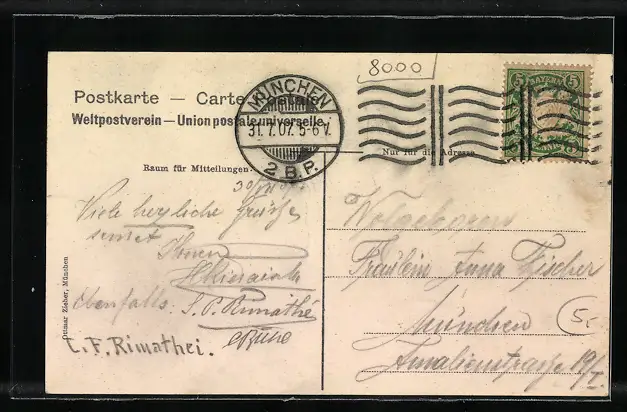 8000
Postkarte — Carte postale
Weltpostverein — Union postale universelle.
MÜNCHEN
31.7.07. 5-6 V.
2 B.P.
5 BAYERN 5
Nur für die Adresse
Raum für Mitteilungen.
Viele herzliche Grüsse
sendet
Ihnen
Ebenfalls S. P. Rimathé
C. F. Rimathei.
Ottmar Zieher, München
Fräulein Anna Fischer
München
Amalienstrasse 19/I
5.-